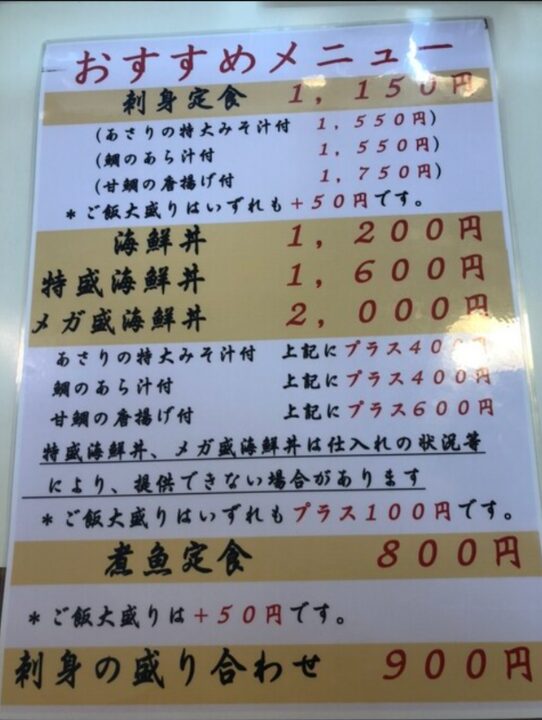 おすすめメニュー
刺身定食 1,150円
(あさりの特大みそ汁付 1,550円)
(鯛のあら汁付 1,550円)
(甘鯛の唐揚げ付 1,750円)
*ご飯大盛りはいずれも+50円です。
海鮮丼 1,200円
特盛海鮮丼 1,600円
メガ盛海鮮丼 2,000円
あさりの特大みそ汁付 上記にプラス400円
鯛のあら汁付 上記にプラス400円
甘鯛の唐揚げ付 上記にプラス600円
特盛海鮮丼、メガ盛海鮮丼は仕入れの状況等
により、提供できない場合があります
*ご飯大盛りはいずれもプラス100円です。
煮魚定食 800円
*ご飯大盛りは+50円です。
刺身の盛り合わせ 900円